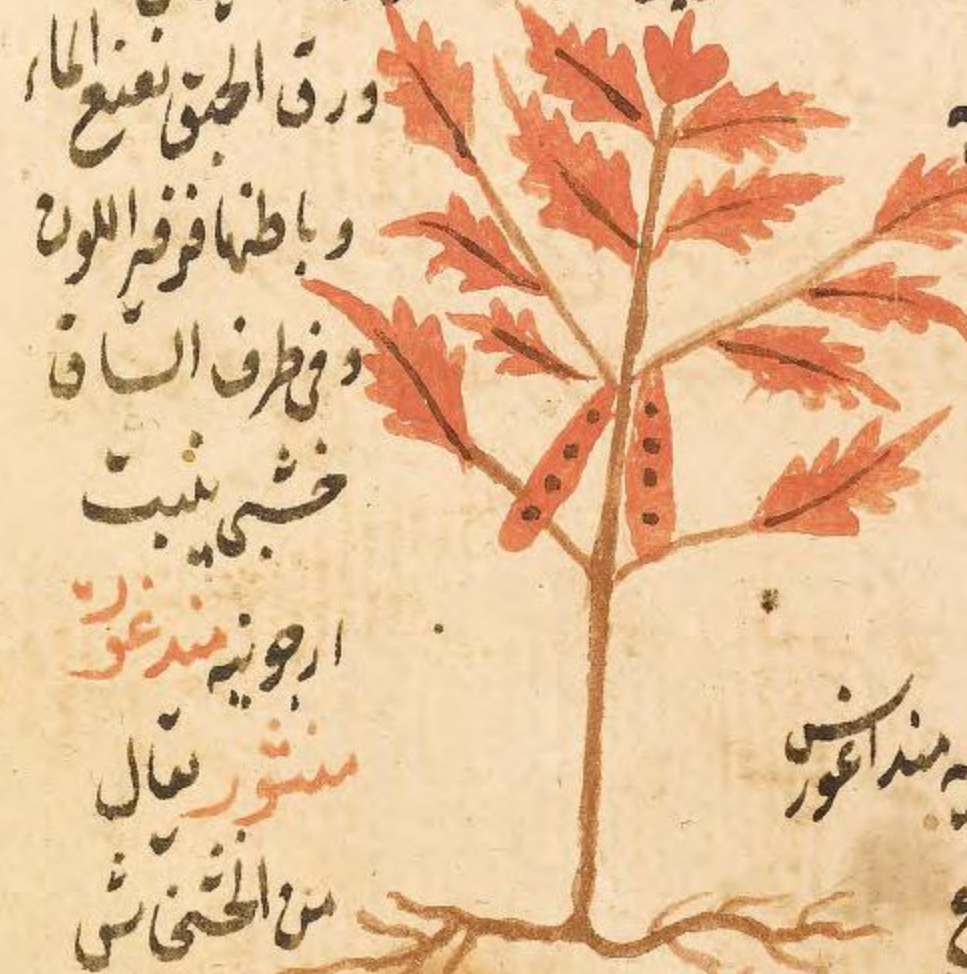 ورق الحبق نعنع الماء
وباطنها فرفير اللون
وفى طرف الساق
خشبى ينبت
ارجونيه مندغوره
منثور يقال
من الخشخاش
منداغورس